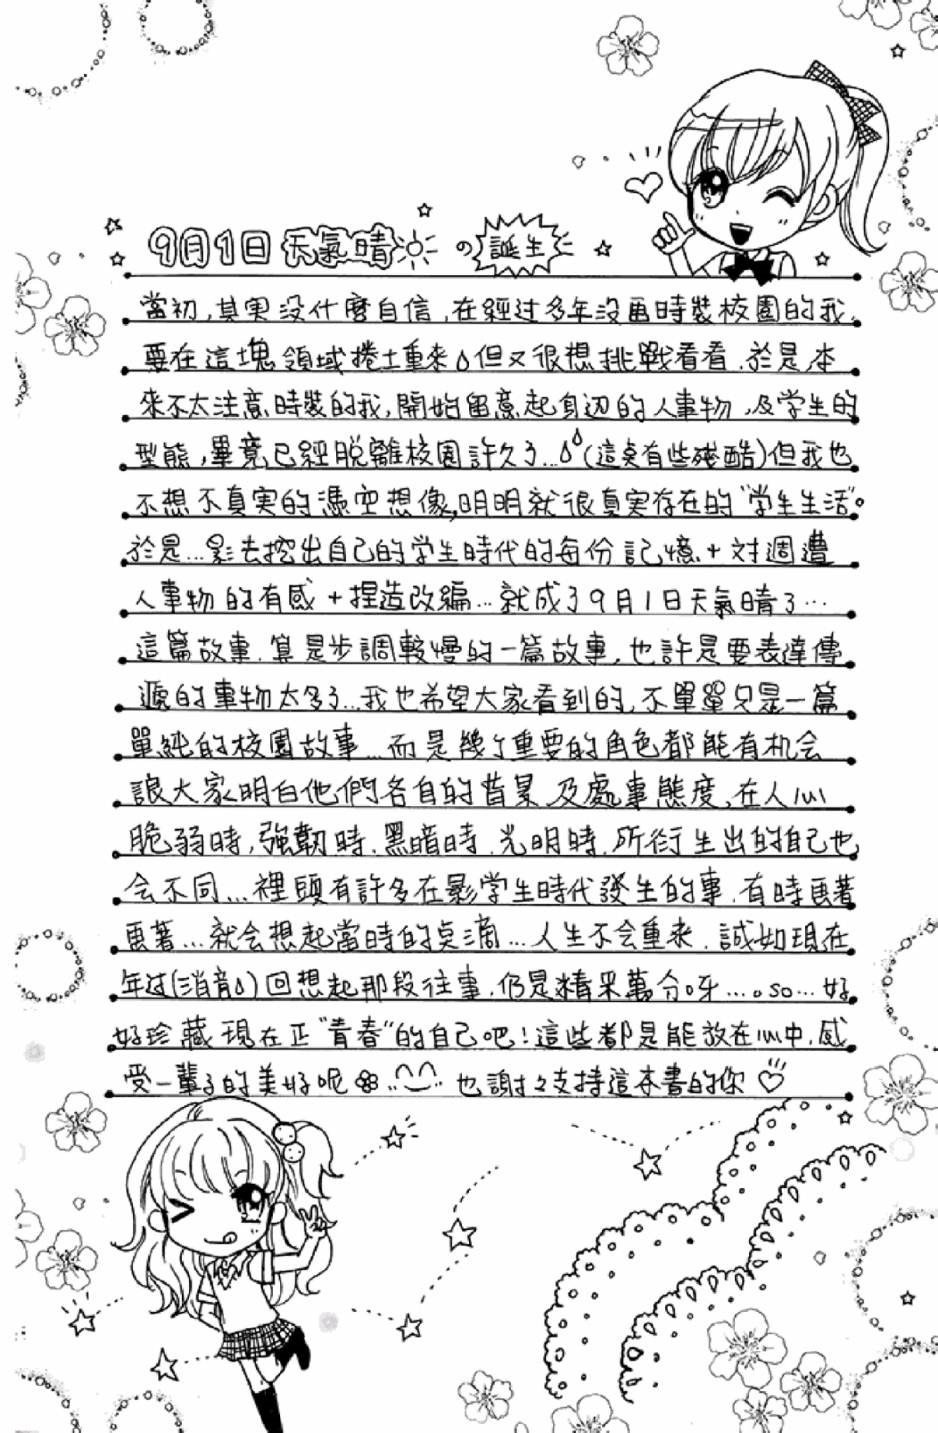 9月1日 天氣晴 の 誕生
當初,其実没什麼自信,在經过多年沒畫時裝校園的我,
要在這塊領域捲土重來,但又很想挑戰看看.於是,本
來不太注意時裝的我,開始留意起身辺的人事物,及学生的
型態,畢竟已經脫離校園許久了...(這真有些殘酷)但我也
不想不真実的憑空想像,明明就很真実存在的"学生生活"。
於是...影去挖出自己的学生時代的每份記憶+对週遭
人事物的有感+捏造改編...就成了9月1日天氣晴了...
這篇故事.算是步調較慢的一篇故事,也許是要表達傳
遞的事物太多了...我也希望大家看到的,不單單只是一篇
單純的校園故事...而是幾个重要的角色都能有机会
讓大家明白他們各自的背景及處事態度,在人心
脆弱時,強韌時.黑暗時.光明時.所衍生出的自己也
会不同...裡頭有許多在影学生時代發生的事.有時畫著
畫著...就会想起當時的点滴...人生不会重來.誠如現在
年过(消音)回想起那段往事.仍是精采萬分呀....。so...好
好珍藏現在正"青春"的自己吧!這些都是能放在心中.感
受一輩子的美好呢 也謝謝支持這本書的你♡